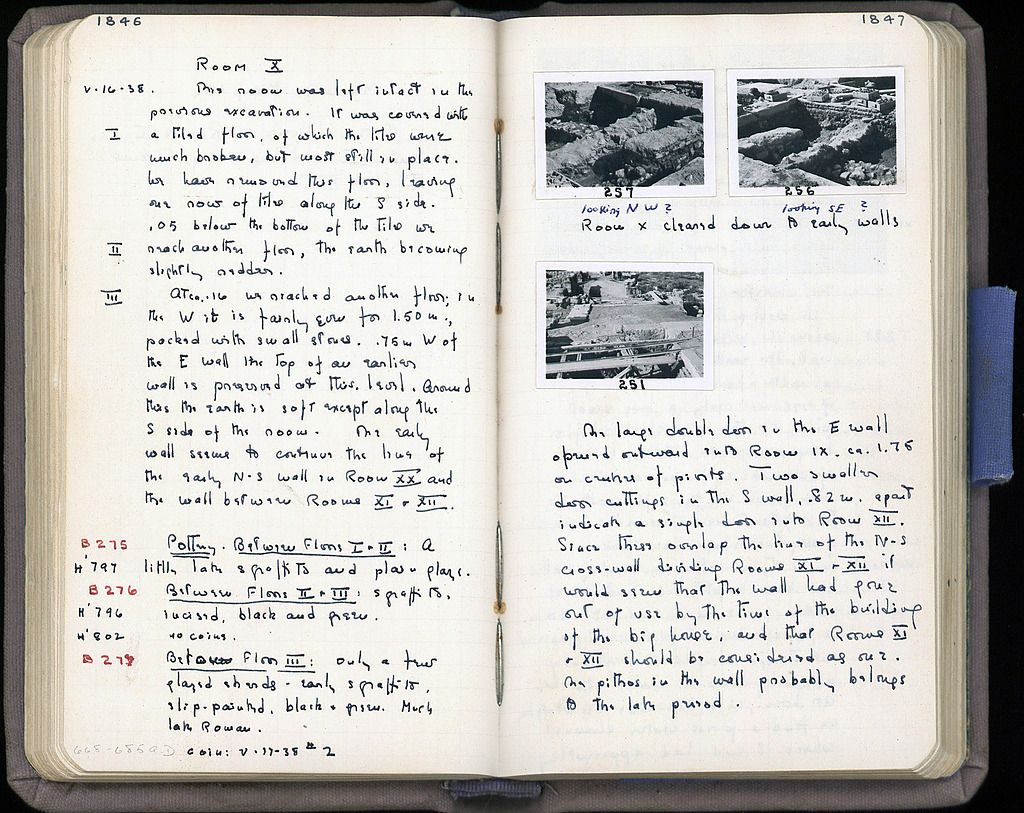 1846
Room X
V·16-38. This room was left intact in the
previous excavation. It was covered with
I a tiled floor, of which the tiles were
much broken, but most still in place.
We have removed this floor, leaving
one row of tiles along the S side.
.05 below the bottom of the tiles we
II reach another floor, the earth becoming
slightly redder.
III At ca. .16 we reached another floor; in
the W it is fairly good for 1.50 m.,
packed with small stones. .75m W of
the E wall the top of an earlier
wall is preserved at this level. Around
this the earth is soft except along the
S side of the room. The early
wall seems to continue the line of
the early N-S wall in Room XX and
the wall between Rooms XI + XII.
B 275 Pottery. Between Floors I + II: A
H'797 little late sgraffito and plain glaze.
B 276 Between Floors II + III: sgraffito,
H'796 incised, black and green.
H'802 no coins.
B 277 Below Floor III: only a few
glazed sherds - early sgraffito,
slip-painted, black + green. Much
late Roman.
668-685 a D coin: V-17-38 # 2
1847
257
256
looking NW?
looking SE ?
Room X cleared down to early walls
251
The large double door in the E wall
opened outward into Room IX. ca. 1.76
on centres of pivots. Two smaller
door cuttings in the S wall, .82 m. apart
indicate a single door into Room XII.
Since these overlap the line of the N-S
cross-wall dividing Rooms XI + XII it
would seem that the wall had gone
out of use by the time of the building
of the big house, and that Rooms XI
+ XII should be considered as one.
The pithos in the wall probably belongs
to the late period.